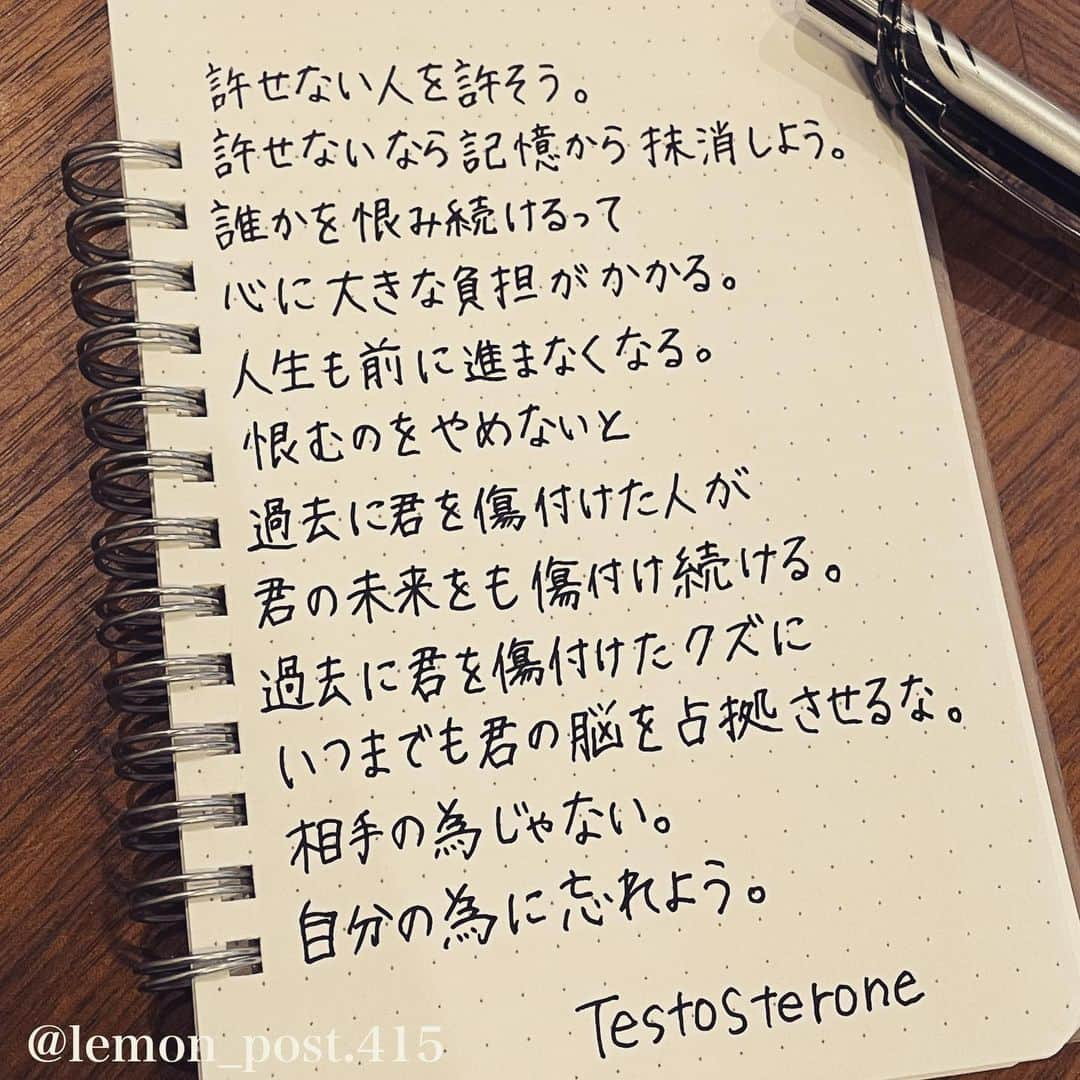 許せない人を許そう。
許せないなら記憶から抹消しよう。
誰かを恨み続けるって
心に大きな負担がかかる。
人生も前に進まなくなる。
恨むのをやめないと
過去に君を傷付けた人が
君の未来をも傷付け続ける。
過去に君を傷付けたクズに
いつまでも君の脳を占拠させるな。
相手の為じゃない。
自分の為に忘れよう。
Testosterone
@lemon_post.415